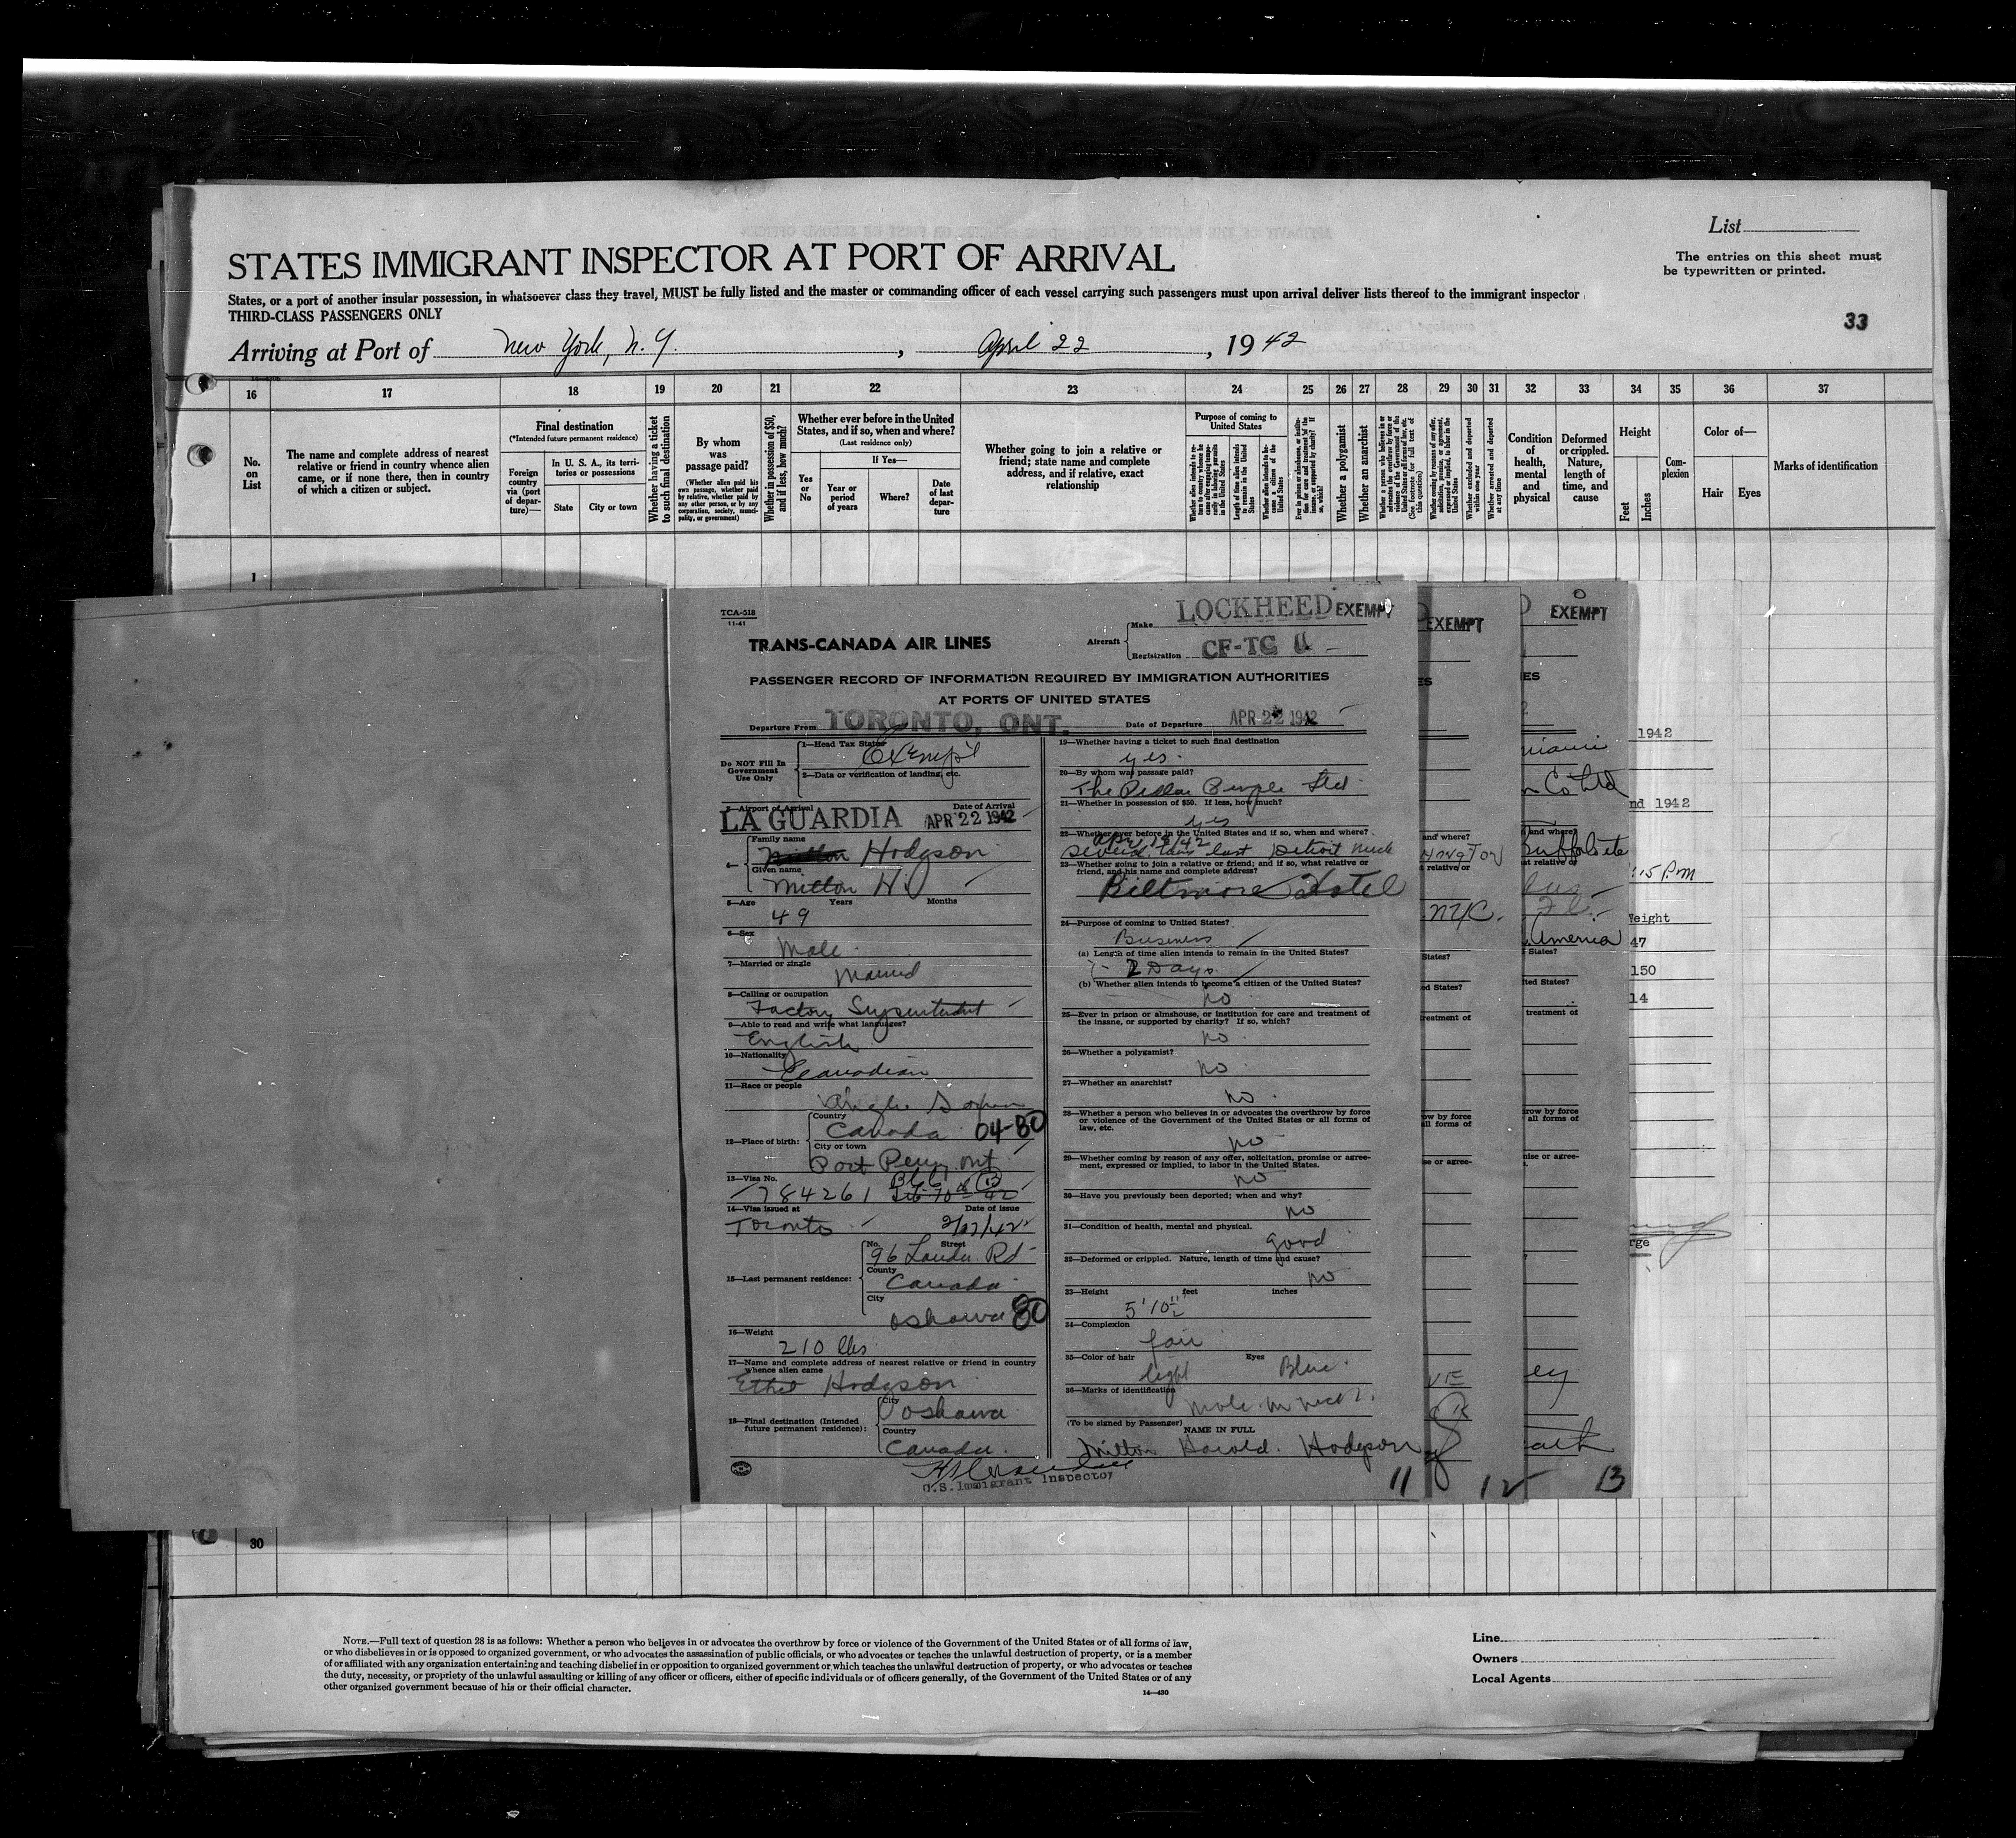 List
STATES IMMIGRANT INSPECTOR AT PORT OF ARRIVAL
The entries on this sheet must
be typewritten or printed.
States, or a port of another insular possession, in whatsoever class they travel, MUST be fully listed and the master or commanding officer of each vessel carrying such passengers must upon arrival deliver lists thereof to the immigrant inspector
THIRD-CLASS PASSENGERS ONLY
33
Arriving at Port of New York, N.Y., April 22, 1942
16 17 18 19 20 21 22 23 24 25 26 27 28 29 30 31 32 33 34 35 36 37
No. on List
The name and complete address of nearest
relative or friend in country whence alien
came, or if none there, then in country
of which a citizen or subject.
Final destination
(*Intended future permanent residence)
Foreign country via (port of departure)—
In U. S. A., its territories or possessions
State
City or town
Whether having a ticket to such final destination
By whom was passage paid?
(Whether alien paid his own passage, whether paid by relative, whether paid by any other person, or by any corporation, society, municipality, or government)
Whether in possession of $50, and if less, how much?
Whether ever before in the United
States, and if so, when and where?
(Last residence only)
Yes or No
If Yes—
Year or period of years
Where?
Date of last departure
Whether going to join a relative or
friend; state name and complete
address, and if relative, exact
relationship
Purpose of coming to
United States
Whether a polygamist
Whether an anarchist
Whether excluded and deported within one year
Whether arrested and deported at any time
Condition of health, mental and physical
Deformed or crippled. Nature, length of time, and cause
Height
Feet
Inches
Complexion
Color of—
Hair
Eyes
Marks of identification
1
TCA-518
11-41
TRANS-CANADA AIR LINES
Aircraft
Make LOCKHEED EXEMPT
Registration CF-TC
PASSENGER RECORD OF INFORMATION REQUIRED BY IMMIGRATION AUTHORITIES
AT PORTS OF UNITED STATES
Departure From TORONTO, ONT.
Date of Departure APR 22 1942
Do NOT Fill In
Government
Use Only
1—Head Tax Status
Exempt
2—Data or verification of landing, etc.
3—Airport of Arrival
Date of Arrival
LA GUARDIA APR 22 1942
4—
Family name
Hodgson
Given name
Milton H
5—Age Years Months
49
6—Sex
Male
7—Married or single
Married
8—Calling or occupation
Factory Superintendent
9—Able to read and write what languages?
English
10—Nationality
Canadian
11—Race or people
Anglo Saxon
12—Place of birth:
Country
Canada 04-80
City or town
Port Perry Ont
13—Visa No.
784261
14—Visa issued at
Date of issue
Toronto
15—Last permanent residence:
No. Street
96 Lauder Rd
County
Canada
City
Oshawa 80
16—Weight
210 lbs
17—Name and complete address of nearest relative or friend in country
whence alien came
Ethel Hodgson
18—Final destination (Intended
future permanent residence):
City
Oshawa
Country
Canada
U.S. Immigrant Inspector
19—Whether having a ticket to such final destination
yes
20—By whom was passage paid?
The Pedlar People Ltd
21—Whether in possession of $50. If less, how much?
yes
22—Whether ever before in the United States and if so, when and where?
several times last Detroit Mich
23—Whether going to join a relative or friend; and if so, what relative or
friend, and his name and complete address?
Biltmore Hotel
24—Purpose of coming to United States?
Business
(a) Length of time alien intends to remain in the United States?
2 Days
(b) Whether alien intends to become a citizen of the United States?
no
25—Ever in prison or almshouse, or institution for care and treatment of
the insane, or supported by charity? If so, which?
no
26—Whether a polygamist?
no
27—Whether an anarchist?
no
28—Whether a person who believes in or advocates the overthrow by force
or violence of the Government of the United States or all forms of
law, etc.
no
29—Whether coming by reason of any offer, solicitation, promise or agree-
ment, expressed or implied, to labor in the United States.
no
30—Have you previously been deported; when and why?
no
31—Condition of health, mental and physical.
good
32—Deformed or crippled. Nature, length of time and cause?
no
33—Height feet inches
5'10½"
34—Complexion
fair
35—Color of hair Eyes
light Blue
36—Marks of identification
mole on neck
(To be signed by Passenger)
NAME IN FULL
Milton Harold Hodgson
11
EXEMPT
ES
and where?
relative or
NYC.
States?
ed States?
reatment of
ow by force
ll forms of
se or agree-
12
EXEMPT
ES
Co Ltd
and where?
at relative or
America
States?
ted States?
treatment of
row by force
all forms of
nise or agree-
13
1942
nd 1942
:15 P.m
Weight
47
150
14
rge
30
NOTE.—Full text of question 28 is as follows: Whether a person who believes in or advocates the overthrow by force or violence of the Government of the United States or of all forms of law,
or who disbelieves in or is opposed to organized government, or who advocates the assassination of public officials, or who advocates or teaches the unlawful destruction of property, or is a member
of or affiliated with any organization entertaining and teaching disbelief in or opposition to organized government or which teaches the unlawful destruction of property, or who advocates or teaches
the duty, necessity, or propriety of the unlawful assaulting or killing of any officer or officers, either of specific individuals or of officers generally, of the Government of the United States or of any
other organized government because of his or their official character.
14—430
Line
Owners
Local Agents